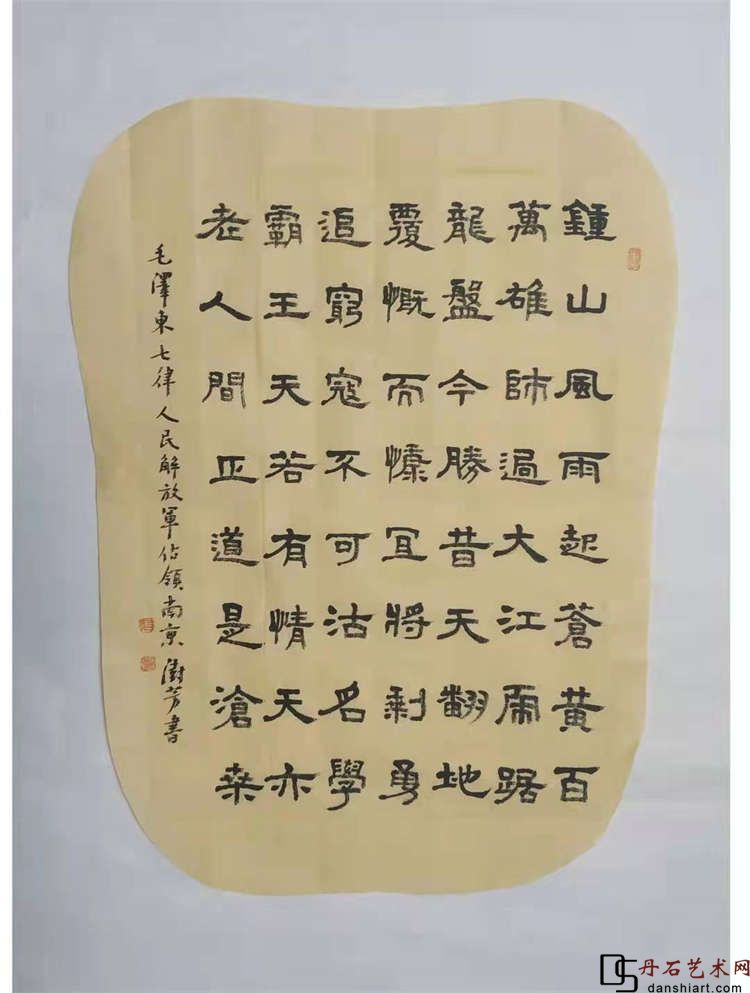 鍾山風雨起蒼黄百
萬雄師過大江虎踞
龍盤今勝昔天翻地
覆慨而慷宜將剩勇
追窮寇不可沽名學
霸王天若有情天亦
老人間正道是滄桑
毛澤東七律人民解放軍佔領南京 澍芳書
丹石艺术网
danshiart.com